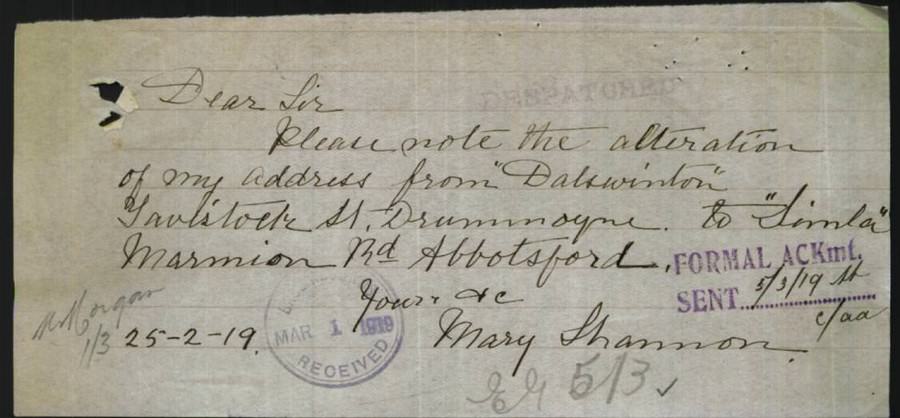 DESPATCHED
Dear Sir
Please note the alteration
of my address from "Dalswinton"
Tavistock St. Drummoyne. to "Simla"
Marmion Rd Abbotsford.
FORMAL ACKmt.
SENT 5/3/19
c/aa
Yours &c
Mary Shannon.
Morgan
1/3
25-2-19.
MAR 1 1919
RECEIVED
5/3